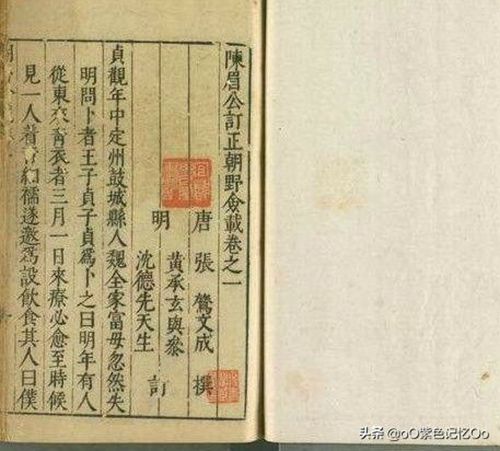 陳眉公訂正朝野僉載卷之一
唐 張 鷟文成 撰
明 黄承玄與參
沈德先天生 訂
貞觀年中定州鼓城縣人魏全家富母忽然失
明問卜者王子貞子貞爲卜之曰明年有人
從東來青衣者三月一日來療必愈至時候
見一人着青紬襦遂邀爲設飲食其人曰僕
头条 @oO紫色记忆Oo